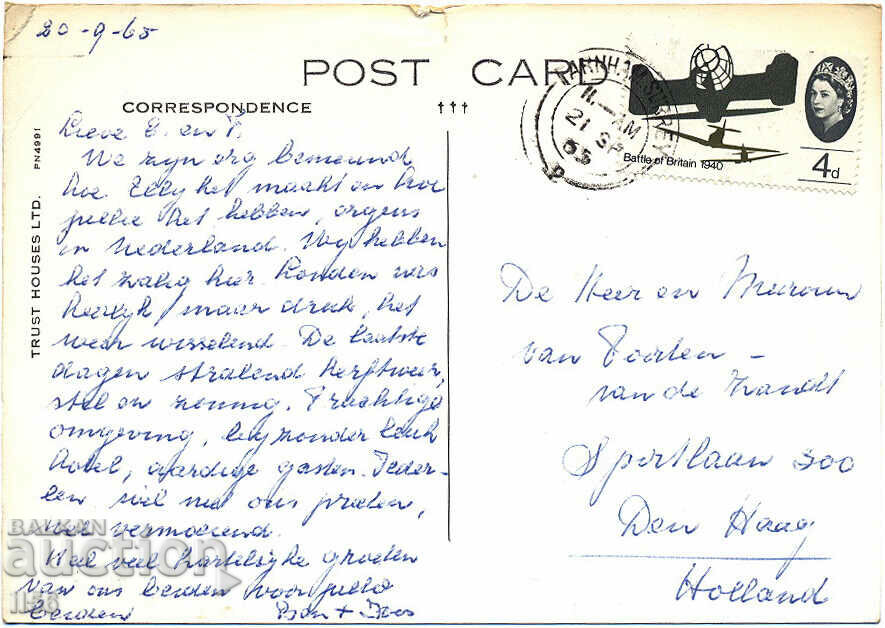 20-9-65
POST CARD
CORRESPONDENCE
TRUST HOUSES LTD.
PN4991
FARNHAM SURREY
11- AM
21 SP
65
Battle of Britain 1940
4d
Lieve E. en P.
We zijn erg benieuwd
hoe Elly het maakt en hoe
jullie het hebben, ergens
in Nederland. Wij hebben
het zalig hier. Londen was
heerlijk maar druk, het
weer wisselend. De laatste
dagen stralend herfstweer,
stil en zonnig. Prachtige
omgeving, bijzonder leuk
hotel, aardige gasten. Ieder-
een wil met ons praten,
wel vermoeiend.
Heel veel hartelijke groeten
van ons beiden voor jullie
beiden
+ Joos
De Heer en Mevrouw
van Voorten -
van de Zandt
Sportlaan 300
Den Haag
Holland
BALKAN
auction
1156